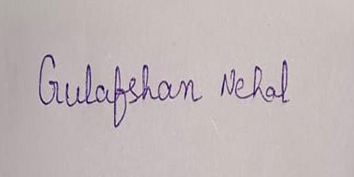 Gulafshan Nehal